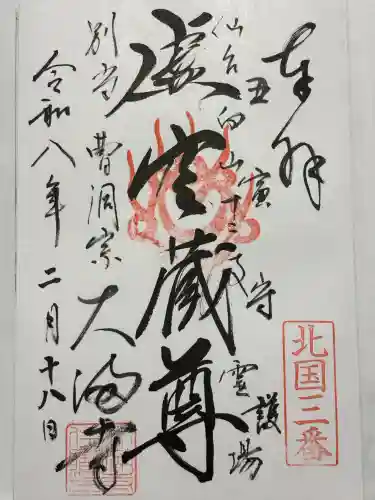 奉拝
丑寅守護
仙台向山十二支霊場
虚空蔵尊
別当 曹洞宗 大満寺
令和八年二月十八日
北国三番